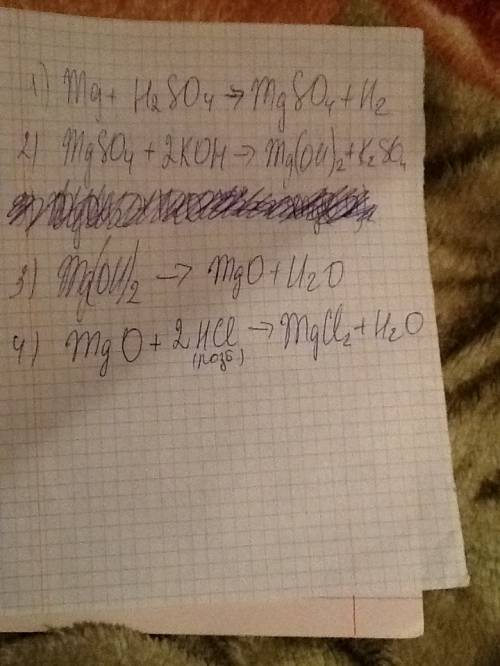 1) Mg + H2SO4 → MgSO4 + H2
2) MgSO4 + 2KOH → Mg(OH)2 + K2SO4
3) Mg(OH)2 → MgO + H2O
4) MgO + 2HCl → MgCl2 + H2O
(розб.)